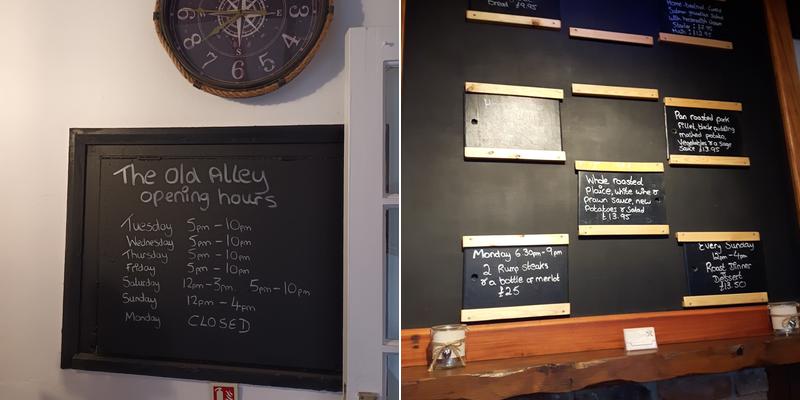 The Old Alley
opening hours
Tuesday 5pm - 10pm
Wednesday 5pm - 10pm
Thursday 5pm - 10pm
Friday 5pm - 10pm
Saturday 12pm - 3pm. 5pm - 10pm
Sunday 12pm - 4pm
Monday CLOSED
Bread £9.95
Pan roasted pork
fillet, black pudding
mashed potato,
vegetables & a sage
sauce £13.95
Whole roasted
plaice, white wine &
prawn sauce, new
potatoes & salad
£13.95
Monday 6.30pm - 9pm
2 Rump steaks
& a bottle of merlot
£25
Every Sunday
12pm - 4pm
Roast Dinner
Dessert
£13.50